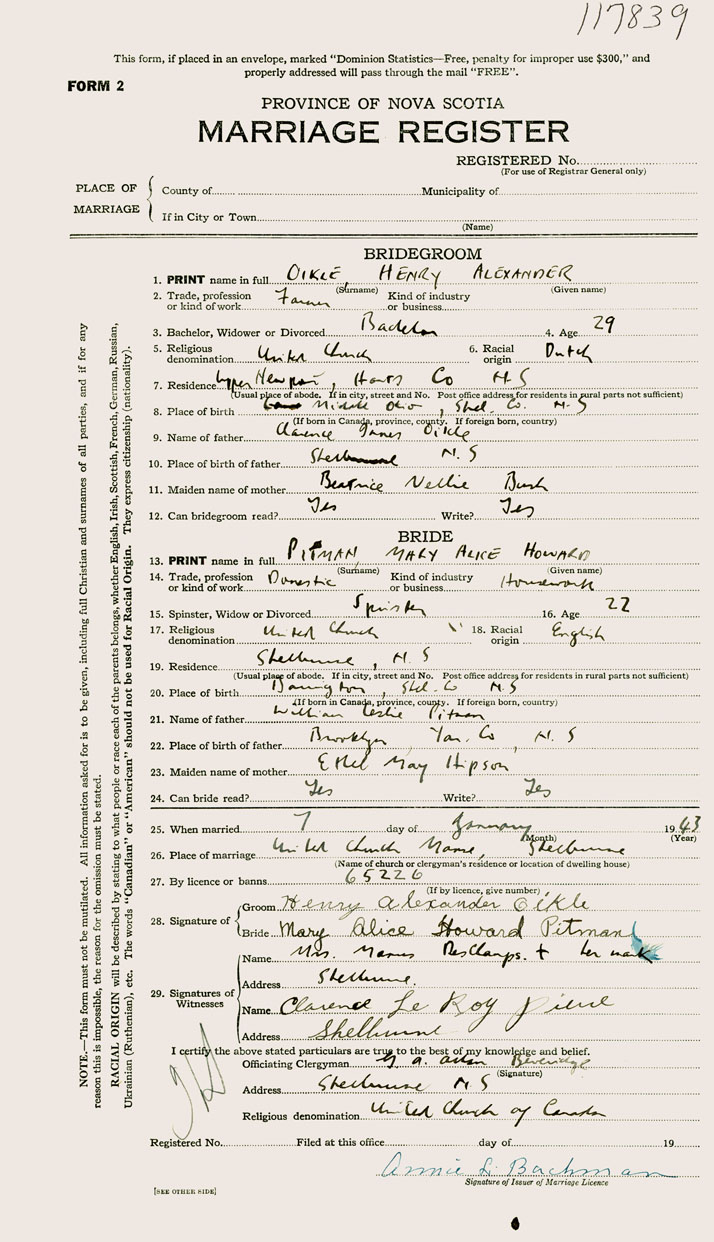 117839
This form, if placed in an envelope, marked "Dominion Statistics—Free, penalty for improper use $300," and
properly addressed will pass through the mail "FREE".
FORM 2
PROVINCE OF NOVA SCOTIA
MARRIAGE REGISTER
REGISTERED No.
(For use of Registrar General only)
PLACE OF MARRIAGE
County of Municipality of
If in City or Town
(Name)
BRIDEGROOM
1. PRINT name in full OIKLE, HENRY ALEXANDER
(Surname) (Given name)
2. Trade, profession or kind of work Farmer Kind of industry or business
3. Bachelor, Widower or Divorced Bachelor 4. Age 29
5. Religious denomination United Church 6. Racial origin Dutch
7. Residence Upper Newport, Hants Co N.S
(Usual place of abode. If in city, street and No. Post office address for residents in rural parts not sufficient)
8. Place of birth Middle Ohio, Shel. Co. N.S
(If born in Canada, province, county. If foreign born, country)
9. Name of father Clarence James Oikle
10. Place of birth of father Shelburne N.S
11. Maiden name of mother Beatrice Nellie Bush
12. Can bridegroom read? Yes Write? Yes
BRIDE
13. PRINT name in full PITMAN MARY ALICE HOWARD
(Surname) (Given name)
14. Trade, profession or kind of work Domestic Kind of industry or business Housework
15. Spinster, Widow or Divorced Spinster 16. Age 22
17. Religious denomination United Church 18. Racial origin English
19. Residence Shelburne, N.S
(Usual place of abode. If in city, street and No. Post office address for residents in rural parts not sufficient)
20. Place of birth Barrington, Shel. Co N.S
(If born in Canada, province, county. If foreign born, country)
21. Name of father William Leslie Pitman
22. Place of birth of father Brooklyn Yar. Co, N.S
23. Maiden name of mother Ethel May Hipson
24. Can bride read? Yes Write? Yes
25. When married 7 day of January 1943
(Month) (Year)
26. Place of marriage United Church Manse, Shelburne
(Name of church or clergyman's residence or location of dwelling house)
27. By licence or banns 65226
(If by licence, give number)
28. Signature of
Groom Henry Alexander Oikle
Bride Mary Alice Howard Pitman
29. Signatures of Witnesses
Name Mrs. DesChamps. + her mark
Address Shelburne.
Name Clarence Le Roy
Address Shelburne
I certify the above stated particulars are true to the best of my knowledge and belief.
Officiating Clergyman Beveridge
(Signature)
Address Shelburne N.S
Religious denomination United Church of Canada
Registered No. Filed at this office day of 19
Annie L. Bachman
Signature of Issuer of Marriage Licence
[SEE OTHER SIDE]
NOTE.—This form must not be mutilated. All information asked for is to be given, including full Christian and surnames of all parties, and if for any
reason this is impossible, the reason for the omission must be stated.
RACIAL ORIGIN will be described by stating to what people or race each of the parents belongs, whether English, Irish, Scottish, French, German, Russian,
Ukrainian (Ruthenian), etc. The words "Canadian" or "American" should not be used for Racial Origin. They express citizenship (nationality).